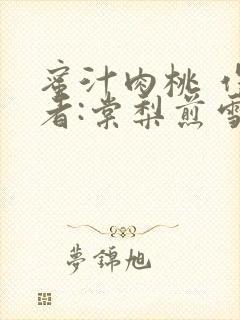 蜜汁肉桃 作
者:棠梨煎雪
夢錦旭